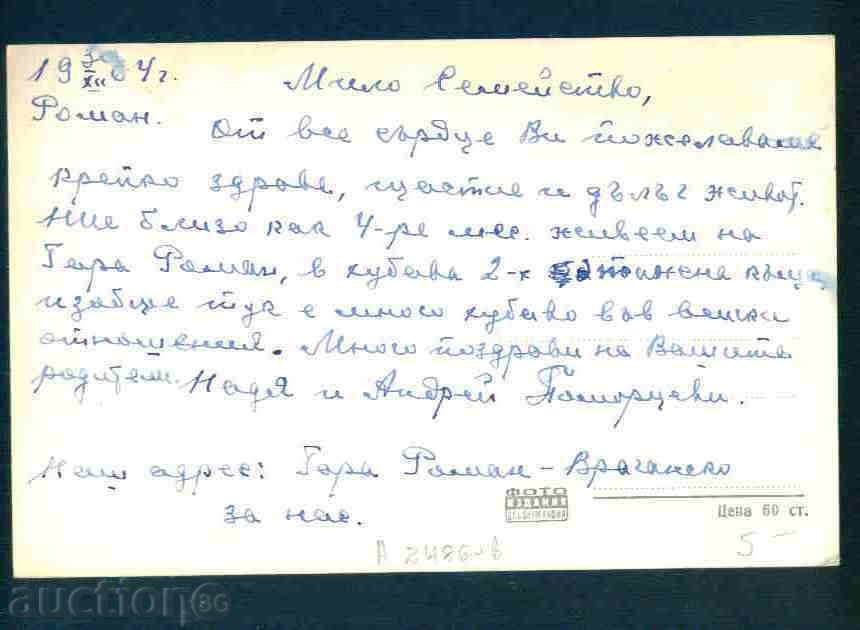 19 30/XII 04г.
Роман.
Мило Семейство,
От все сърдце Ви пожелаваме
крепко здраве, щастие и дълъг живот.
Ние близо как 4-ре мес. живеем на
Гара Роман, в хубава 2-х етажена къща
изобще тук е много хубаво във всички
отношения. Много поздрави на Вашите
родители. Надя и Андрей Поморцеви.
Наш адрес: Гара Роман - Врачанско
за нас.
ФОТО
ИЗДАНИЯ
Цена 60 ст.
А 2486-в
5-
auction BG